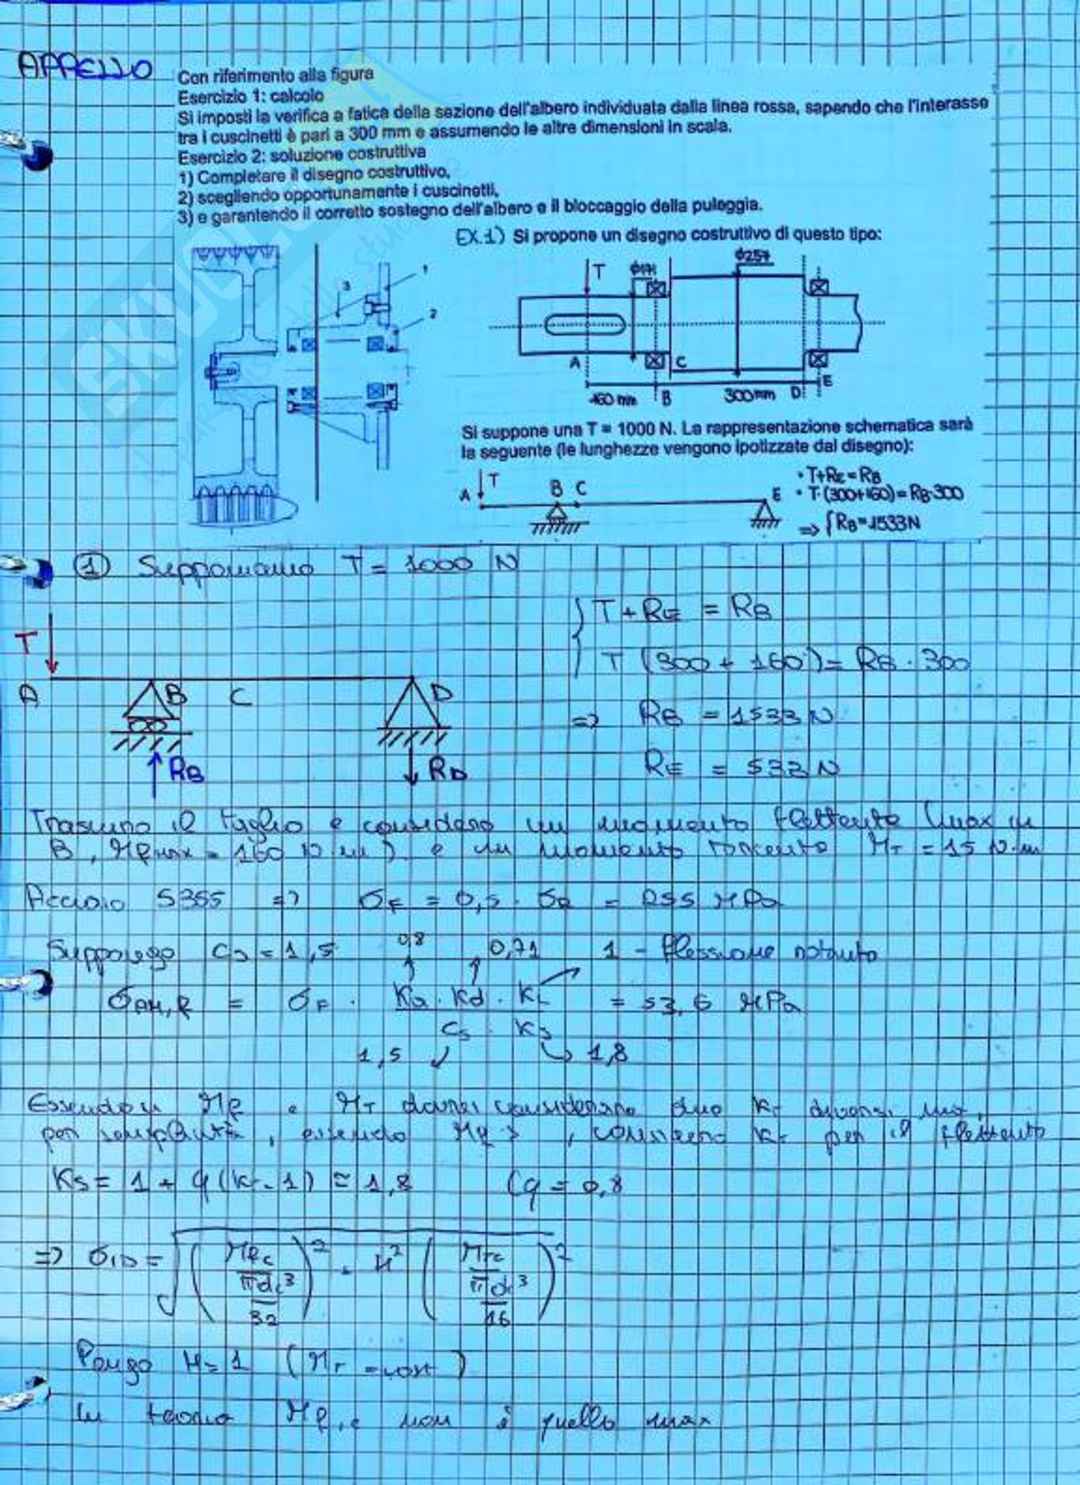 APPELLO
Con riferimento alla figura
Esercizio 1: calcolo
Si imposti la verifica a fatica della sezione dell'albero individuata dalla linea rossa, sapendo che l'interasse
tra i cuscinetti è pari a 300 mm e assumendo le altre dimensioni in scala.
Esercizio 2: soluzione costruttiva
1) Completare il disegno costruttivo,
2) scegliendo opportunamente i cuscinetti,
3) e garantendo il corretto sostegno dell'albero e il bloccaggio della puleggia.
EX.1) Si propone un disegno costruttivo di questo tipo:
T Φ171 Φ257
A C
160 mm B 300mm D E
1
2
3
Si suppone una T = 1000 N. La rappresentazione schematica sarà
la seguente (le lunghezze vengono ipotizzate dal disegno):
A T B C E
• T+RE=RB
• T·(300+160)=RB·300
=> {RB=1533N
① Supponiamo T = 1000 N
T
A B C D
RB RD
{ T + RE = RB
T (300 + 160) = RB · 300
=> RB = 1533 N
RE = 533 N
Trascuro il taglio e considero un momento flettente (max in
B, Mfmax = 160 N·m) e un momento torcente MT = 15 N·m
Acciaio S355 => σF = 0,5 · σR = 255 MPa
Suppongo Cs = 1,5 0,8 0,71 1 - flessione rotante
σAM,R = σF · Ka · Kd · KL = 53,6 MPa
Cs · Ks
1,5 1,8
Essendoci Mf e MT dovrei considerare due Kt diversi, ma,
per semplicità, essendo Mf >, considero Kt per il flettente
Ks = 1 + q (Kt - 1) ≅ 1,8 (q = 0,8
=> σID = √ ( Mfc / πdc³/32 )² + H² ( Mtc / πdc³/16 )²
Pongo H = 1 (MT = cost)
In teoria Mf,c non è quello max